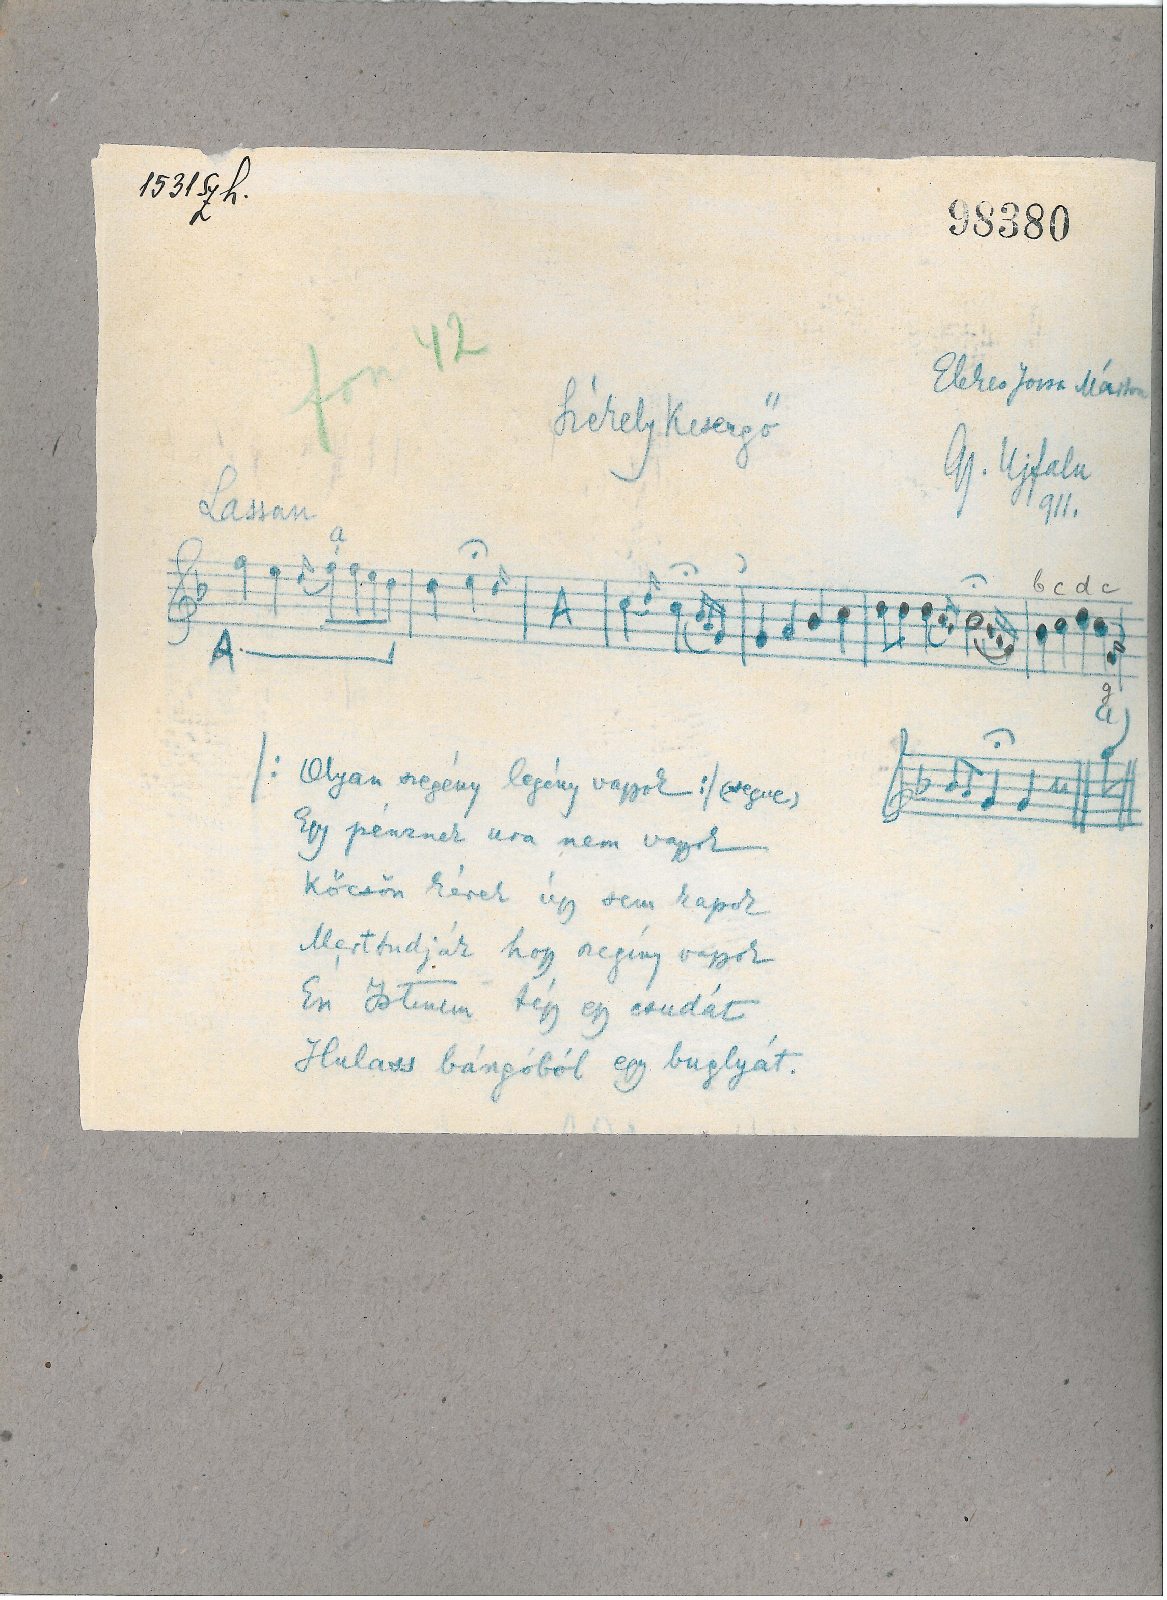 1531 Szh.
98380
fon 42
Elekes Józsa Márton
Székely Kesergő
Gy. Ujfalu
911.
Lassan
a
b c d c
A
A
g
a
|: Olyan szegény legény vagyok :| (segue)
Egy pénznek ura nem vagyok
Kőcsön kérek úgy sem kapok
Mert tudják hogy szegény vagyok
Én Istenem tégy egy csudát
Hulass bángóból egy buglyát.